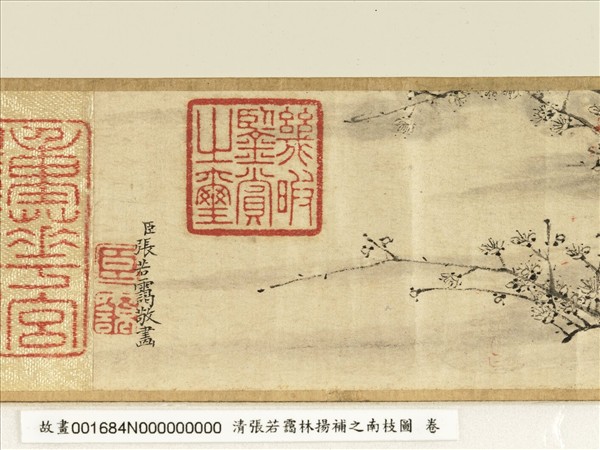 幾暇
鑒賞
之璽
臣張若靄敬畫
故畫001684N000000000 清張若靄林揚補之南枝圖 卷